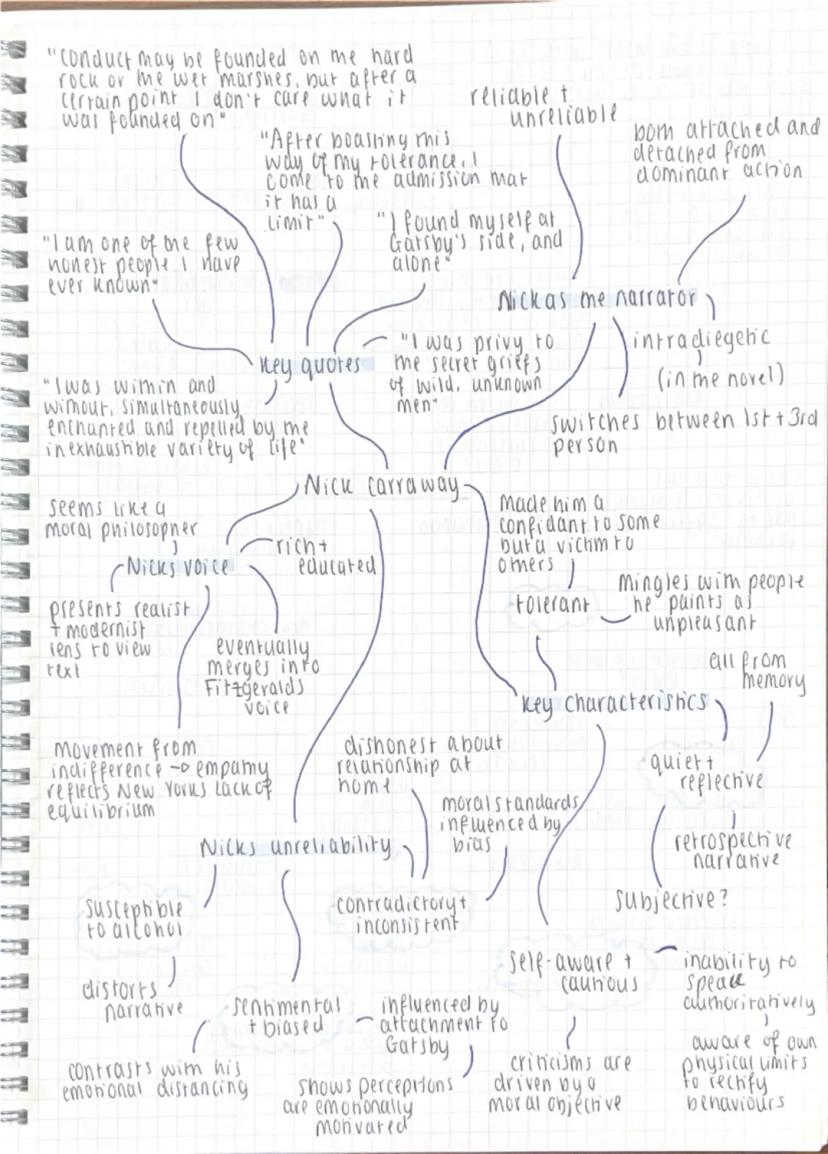 "Conduct may be founded on the hard
rock or the wet marshes, but after a
certain point I don't care what it
was founded on"
"After boasting this
way of my tolerance, I
come to the admission that
it has a
limit"
"I found myself at
Gatsby's side, and
alone"
"I am one of the few
honest people I have
ever known"
"I was privy to
the secret griefs
of wild, unknown
men"
"I was within and
without, simultaneously
enchanted and repelled by the
inexhaustible variety of life"
Key quotes
reliable +
unreliable
both attached and
detached from
dominant action
Nick as the narrator
intradiegetic
(in the novel)
switches between 1st + 3rd
person
Nick Carraway
seems like a
moral philosopher
Nicks voice
rich +
educated
presents realist
+ modernist
lens to view
text
eventually
merges into
Fitzgeralds
voice
movement from
indifference → empathy
reflects New Yorks lack of
equilibrium
Made him a
confidant to some
but a victim to
others
tolerant
Mingles with people
he paints as
unpleasant
Key characteristics
all from
memory
quiet +
reflective
retrospective
narrative
subjective?
self-aware +
cautious
inability to
speak
authoritatively
aware of own
physical limits
to rectify
behaviours
criticisms are
driven by a
moral objective
Nicks unreliability
dishonest about
relationship at
home
moral standards
influenced by
bias
contradictory +
inconsistent
susceptible
to alcohol
distorts
narrative
sentimental
+ biased
influenced by
attachment to
Gatsby
contrasts with his
emotional distancing
shows perceptions
are emotionally
motivated